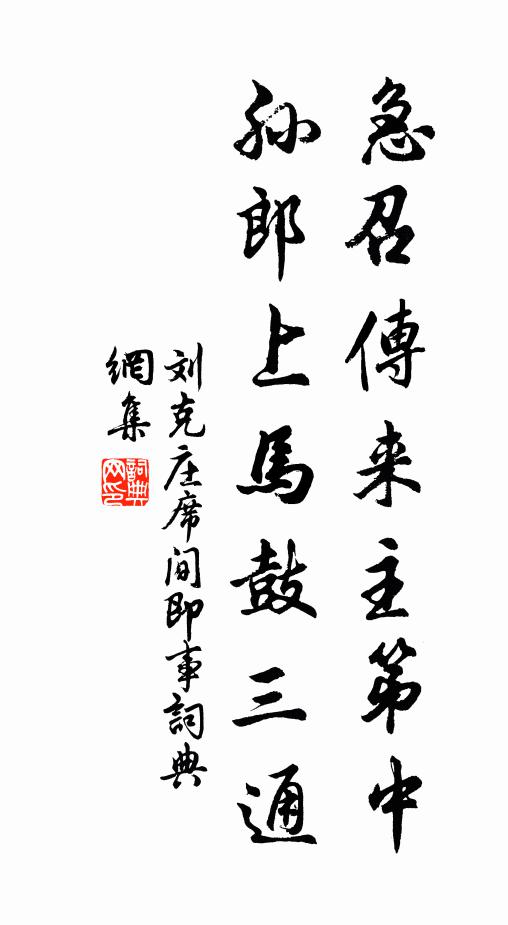 急召傳来主第中
孙郎上馬鼓三通
刘克庄席间即事詞典
網集
詞典网印